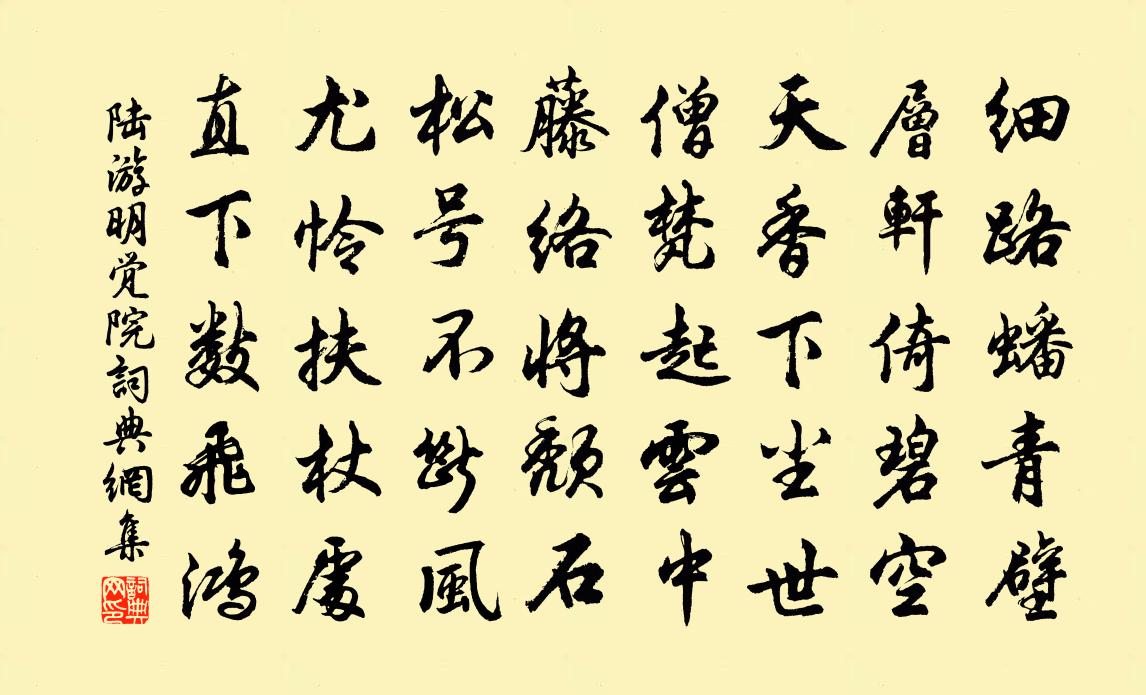 细路蟠青壁
層軒倚碧空
天香下尘世
僧梵起雲中
藤络将颓石
松号不断風
尤怜扶杖處
直下数飛鸿
陆游明觉院詞典網集
詞典網印